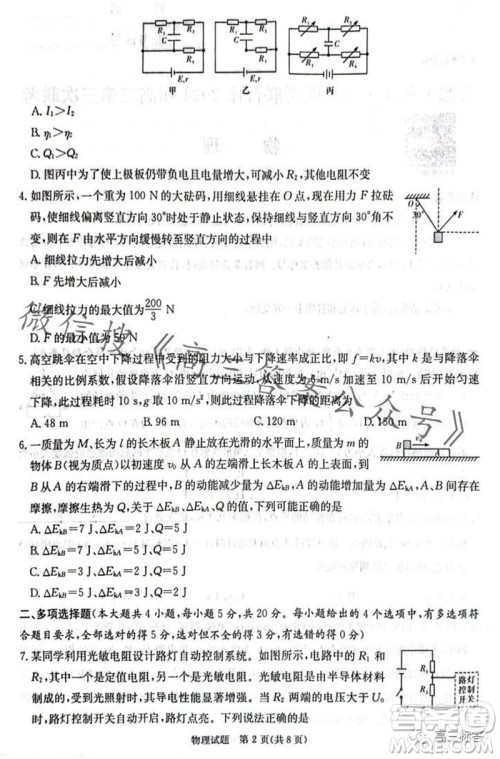 R₁ R₂ C R₃ E,r
甲 乙 丙
A. I₁>I₂
B. η₁>η₂
C. Q₁>Q₂
D. 图丙中为了使上极板仍带负电且电量增大，可增大R₃，其他电阻不变
4. 如图所示，一个重为100 N的大砝码，用细线悬挂在O点，现在用力F拉砝
码，使细线偏离竖直方向30°时处于静止状态，保持细线与竖直方向的夹角
不变，则在F由水平方向缓慢转至竖直方向的过程中
A. 细线拉力先增大后减小
B. F先增大后减小
C. 细线拉力的最大值为200/3 N
D. F的最小值为50 N
O
30°
F
5. 高空跳伞在空中下降过程中受到的阻力大小与下降速率成正比，即f=kv，其中k是与降落伞
相关的比例系数，假设降落伞沿竖直方向运动，降落伞下降的速度从10 m/s开始匀速
下降，此过程耗时10 s，g取10 m/s²，则此过程降落伞下降的高度为
A. 48 m B. 96 m C. 120 m D. 180 m
6. 一质量为M、长为l的长木板A静止放在光滑的水平面上，质量为m的
物体B(视为质点)以初速度v₀从A的左端滑上A的上表面，到
从A的右端滑下的过程中，B的动能减少量为ΔEkB，A的动能增加量为ΔEkA，A、B间存在
摩擦，摩擦生热为Q，关于ΔEkB、ΔEkA、Q的数值，下列可能正确的是
A. ΔEkB=7 J、ΔEkA=2 J、Q=5 J
B. ΔEkB=5 J、ΔEkA=2 J、Q=5 J
C. ΔEkB=7 J、ΔEkA=5 J、Q=2 J
D. ΔEkB=7 J、ΔEkA=5 J、Q=5 J
B v₀
A
二、多项选择题(本大题共4小题，每小题5分，共20分。每小题给出的4个选项中，有多项符
合题目要求，全部选对的得5分，选对但不全的得3分，有选错的得0分)
7. 某同学利用光敏电阻设计路灯自动控制系统。如图所示，电路中的R₁和
R₂，其中一个是定值电阻，另一个是光敏电阻，光敏电阻由半导体材料
制成的，受到光照射时，其导电性能大大增强。当R₂两端的电压大于U
时，控制开关自动启动，路灯点亮。下列说法正确的是
R₁
R₂
路灯
控制
开关
物理试题 第2页(共8页)
微信搜《高三答案公众号》